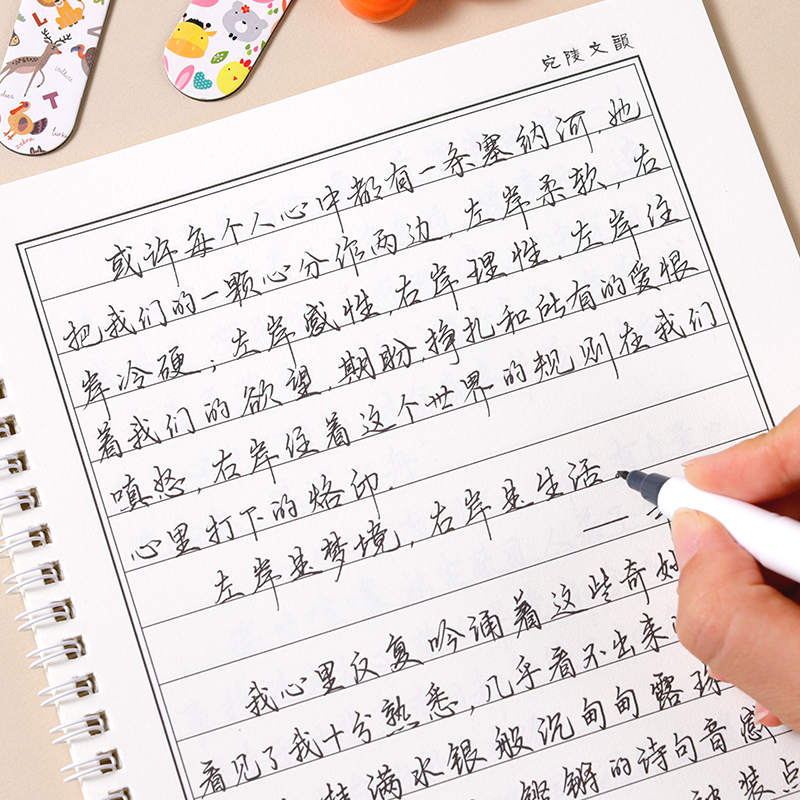 宛陵文韵
或许每个人心中都有一条塞纳河，她
把我们的一颗心分作两边，左岸柔软，右
岸冷硬；左岸感性，右岸理性。左岸住
着我们的欲望，期盼，挣扎和所有的爱恨
嗔怒，右岸住着这个世界的规则在我们
心里打下的烙印。
左岸是梦境，右岸是生活。
我心里反复吟诵着这些奇好
看见了我十分熟悉，几乎看不出来
满水银般沉甸甸露珠
铿锵的诗句音感
装点